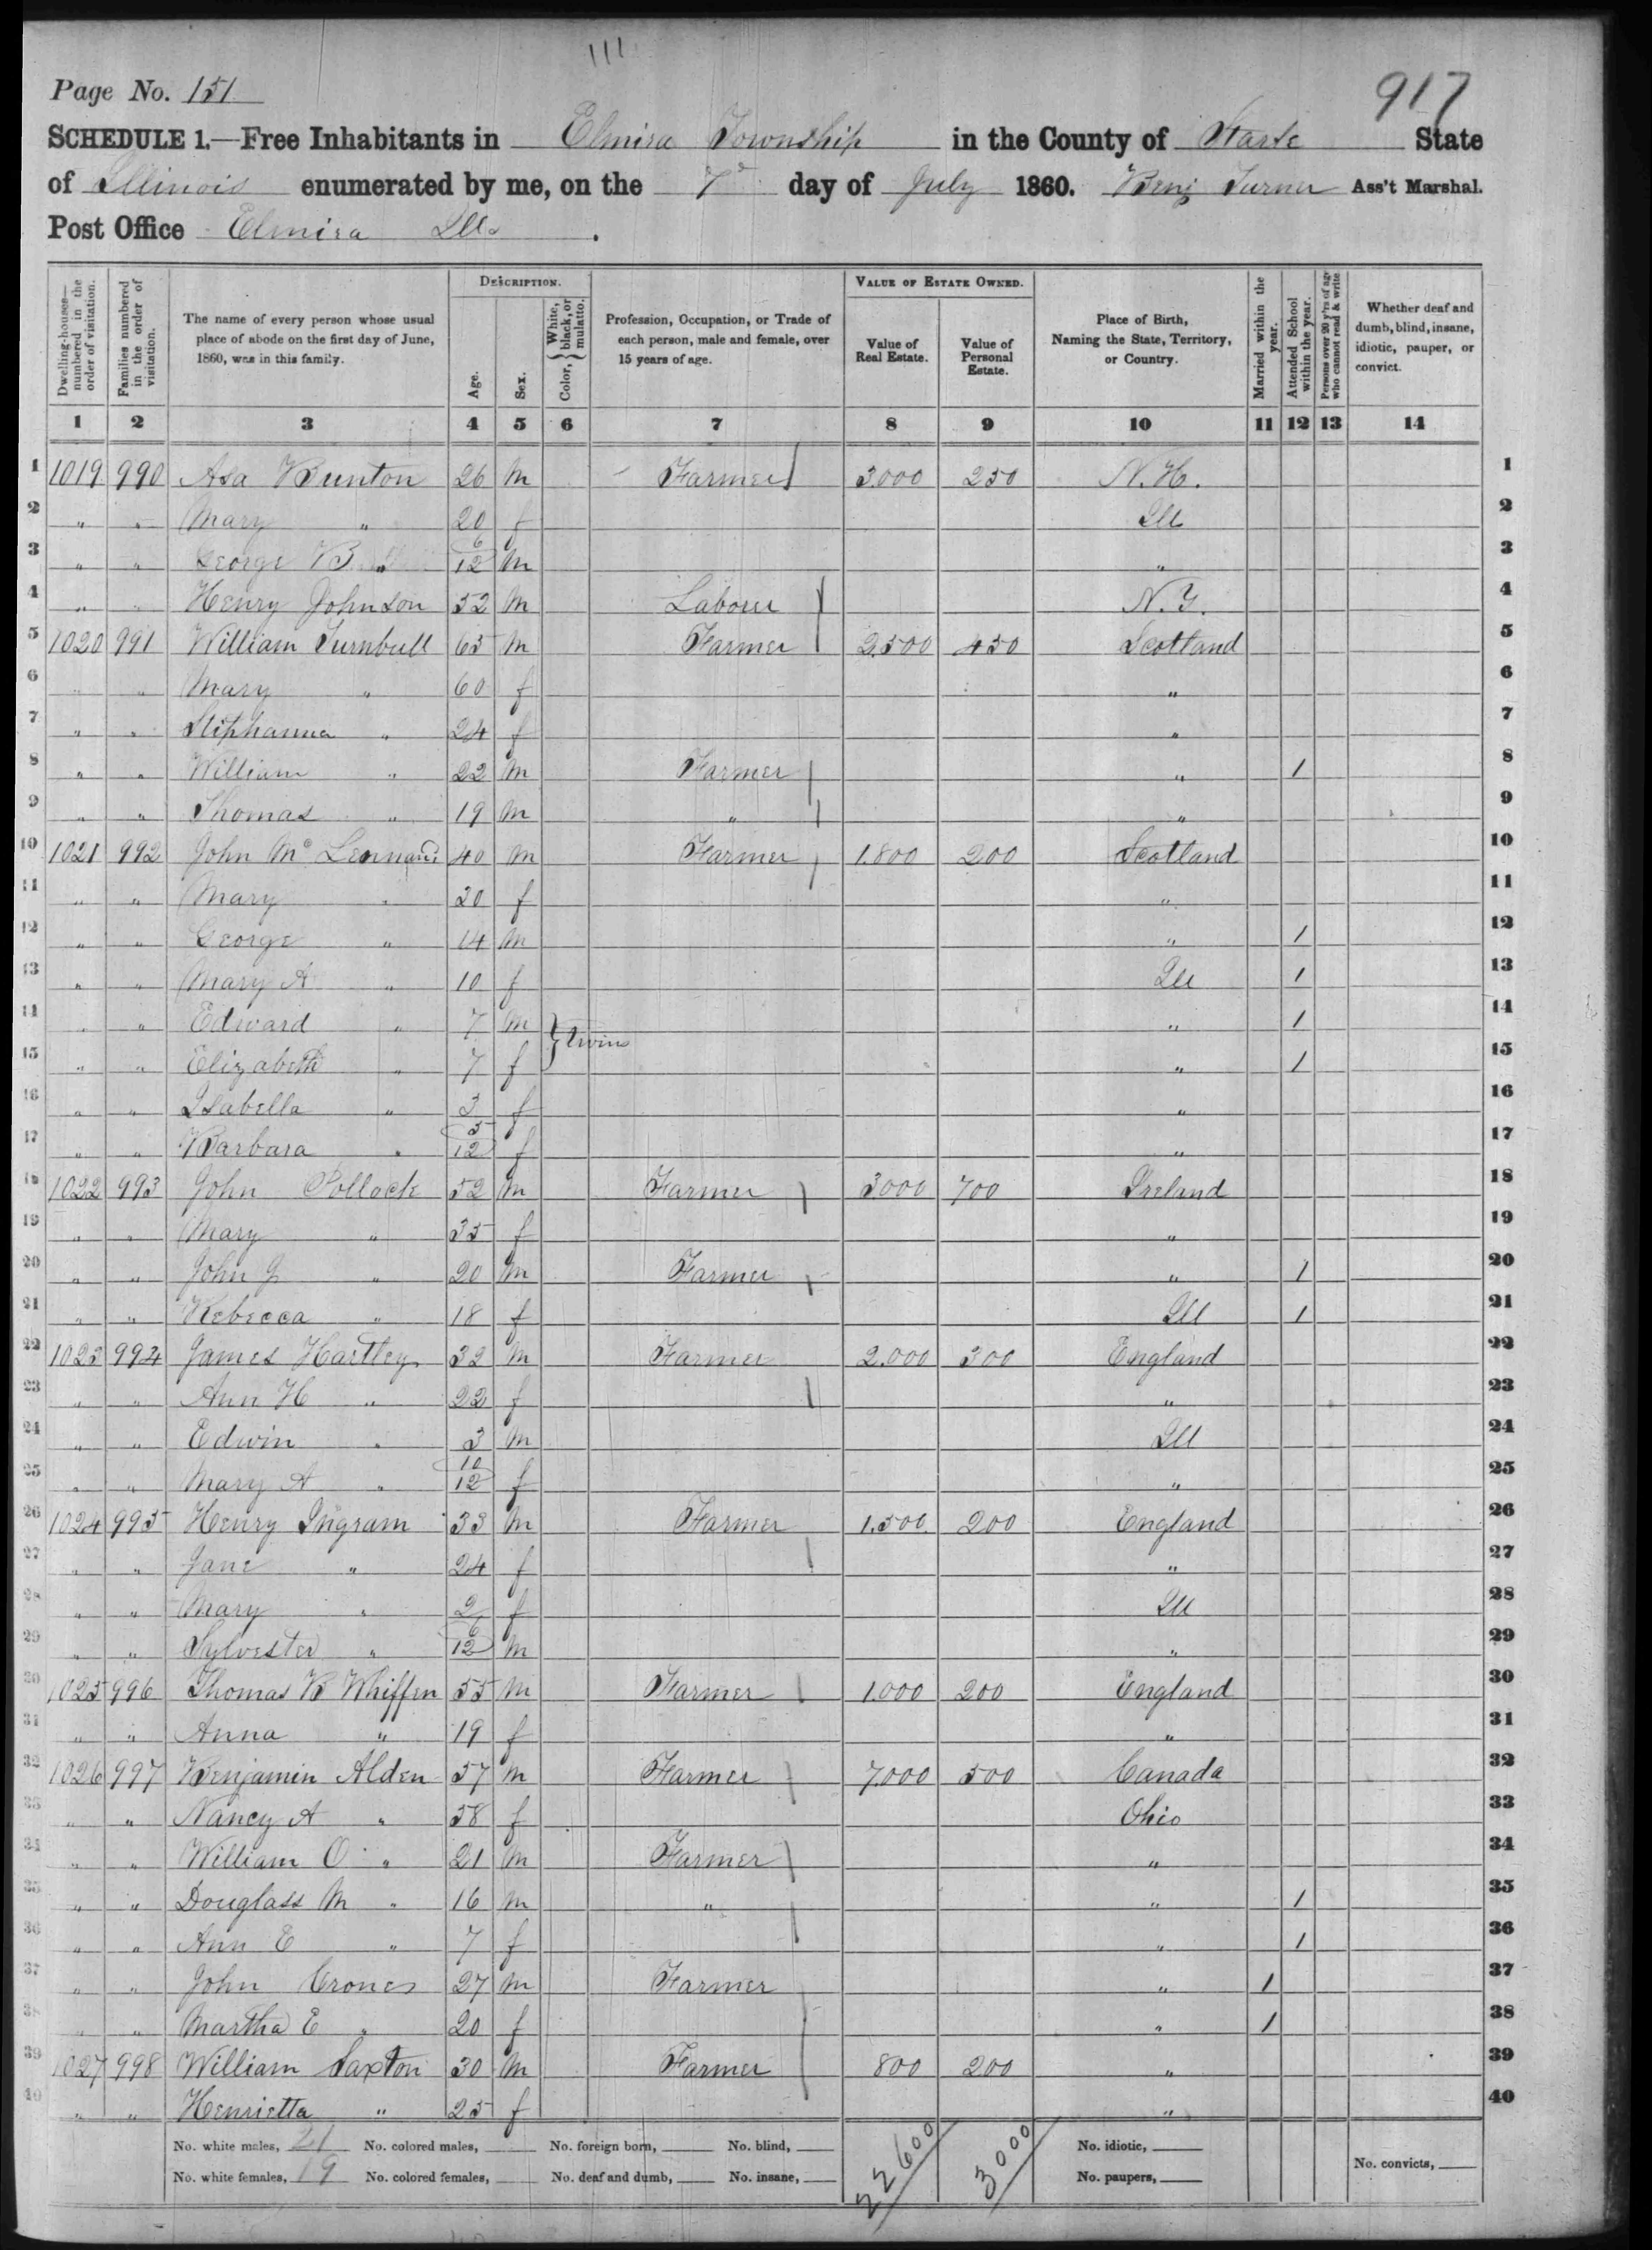 111
Page No. 151
917
SCHEDULE 1.—Free Inhabitants in Elmira Township in the County of Stark State
of Illinois enumerated by me, on the 7th day of July 1860. Benj Turner Ass't Marshal.
Post Office Elmira Ills.
Dwelling-houses—numbered in the order of visitation. Families numbered in the order of visitation. The name of every person whose usual place of abode on the first day of June, 1860, was in this family. DESCRIPTION. Age. Sex. Color, White, black, or mulatto. Profession, Occupation, or Trade of each person, male and female, over 15 years of age. VALUE OF ESTATE OWNED. Value of Real Estate. Value of Personal Estate. Place of Birth, Naming the State, Territory, or Country. Married within the year. Attended School within the year. Persons over 20 y'rs of age who cannot read & write. Whether deaf and dumb, blind, insane, idiotic, pauper, or convict.
1 2 3 4 5 6 7 8 9 10 11 12 13 14
1 1019 990 Asa Bunton 26 m Farmer 3.000 250 N.H. 1
2 " " Mary " 20 f Ill 2
3 " " George B " 6/12 m " 3
4 " " Henry Johnson 52 m Laborer N.Y. 4
5 1020 991 William Turnbull 65 m Farmer 2.500 450 Scotland 5
6 " " Mary " 60 f " 6
7 " " Stiphanna " 24 f " 7
8 " " William " 22 m Farmer " 1 8
9 " " Thomas " 19 m " " 9
10 1021 992 John Mc 40 m Farmer 1.800 200 Scotland 10
11 " " Mary " 30 f " 11
12 " " George " 14 m " 1 12
13 " " Mary A " 10 f Ill 1 13
14 " " Edward " 7 m } twins " 1 14
15 " " Elizabeth " 7 f " 1 15
16 " " Isabella " 3 f " 16
17 " " Barbara " 5/12 f " 17
18 1022 993 John Pollock 52 m Farmer 3000 700 Ireland 18
19 " " Mary " 35 f " 19
20 " " John J " 20 m Farmer " 1 20
21 " " Rebecca " 18 f Ill 1 21
22 1023 994 James Hartley 32 m Farmer 2.000 300 England 22
23 " " Ann H " 22 f " 23
24 " " Edwin " 3 m Ill 24
25 " " Mary A " 10/12 f " 25
26 1024 995 Henry Ingram 33 m Farmer 1.500 200 England 26
27 " " Jane " 24 f " 27
28 " " Mary " 2 f Ill 28
29 " " Sylvester " 6/12 m " 29
30 1025 996 Thomas B Whiffen 55 m Farmer 1.000 200 England 30
31 " " Anna " 19 f " 31
32 1026 997 Benjamin Alden 57 m Farmer 7.000 500 Canada 32
33 " " Nancy A " 58 f Ohio 33
34 " " William O " 21 m Farmer " 34
35 " " Douglass M " 16 m " " 1 35
36 " " Ann E " 7 f " 1 36
37 " " John Crones 27 m Farmer " 1 37
38 " " Martha E " 20 f " 1 38
39 1027 998 William Saxton 30 m Farmer 800 200 " 39
40 " " Henrietta " 25 f " 40
No. white males, 21 No. colored males, No. foreign born, No. blind, 22600 3000 No. idiotic,
No. white females, 19 No. colored females, No. deaf and dumb, No. insane, No. paupers, No. convicts,